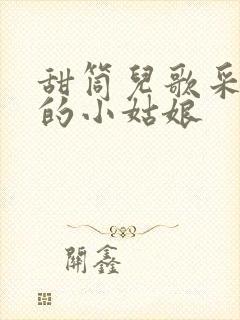 甜筒兒歌采
的小姑娘
開鑫